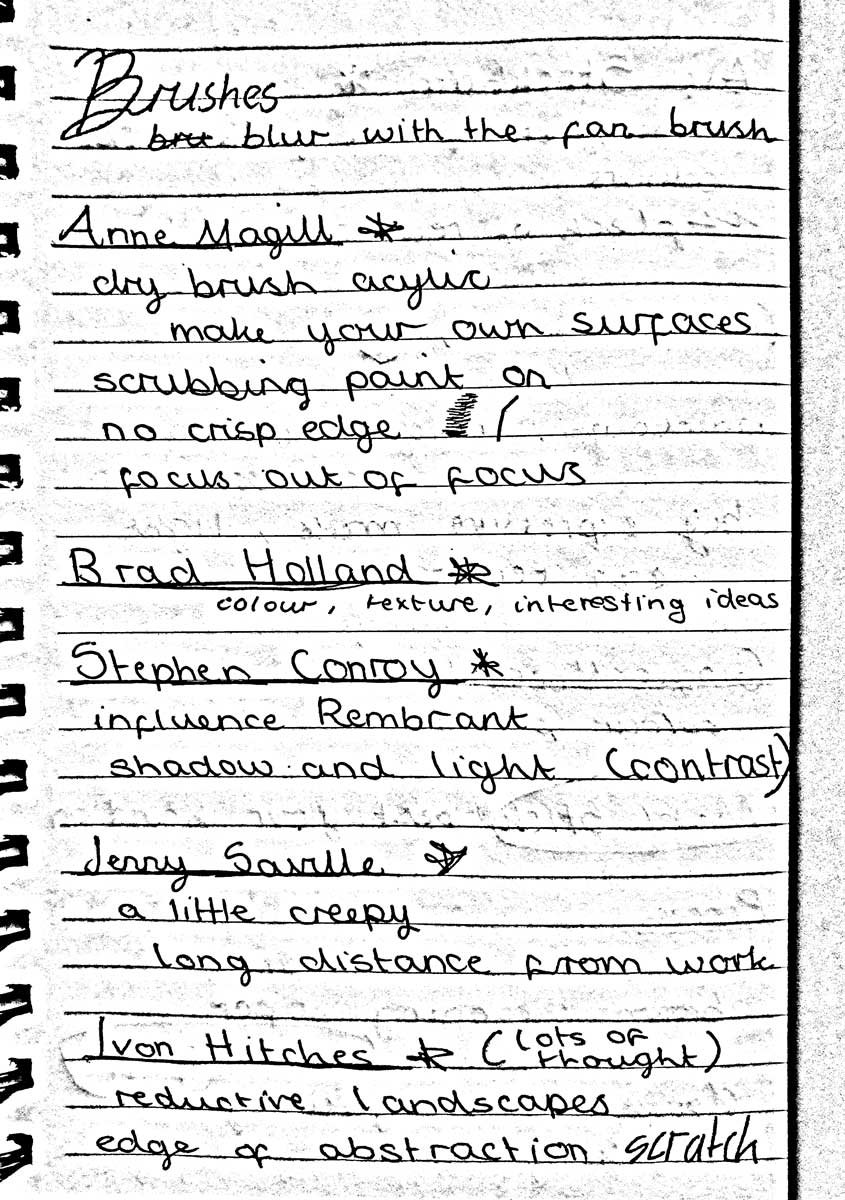 Brushes
bru blur with the fan brush
Anne Magill *
dry brush acylic
make your own surfaces
scrubbing paint on
no crisp edge
focus out of focus
Brad Holland *
colour, texture, interesting ideas
Stephen Conroy *
influence Rembrant
shadow and light (contrast)
Jenny Saville *
a little creepy
long distance from work
Ivon Hitches * (lots of thought)
reductive landscapes
edge of abstraction scratch